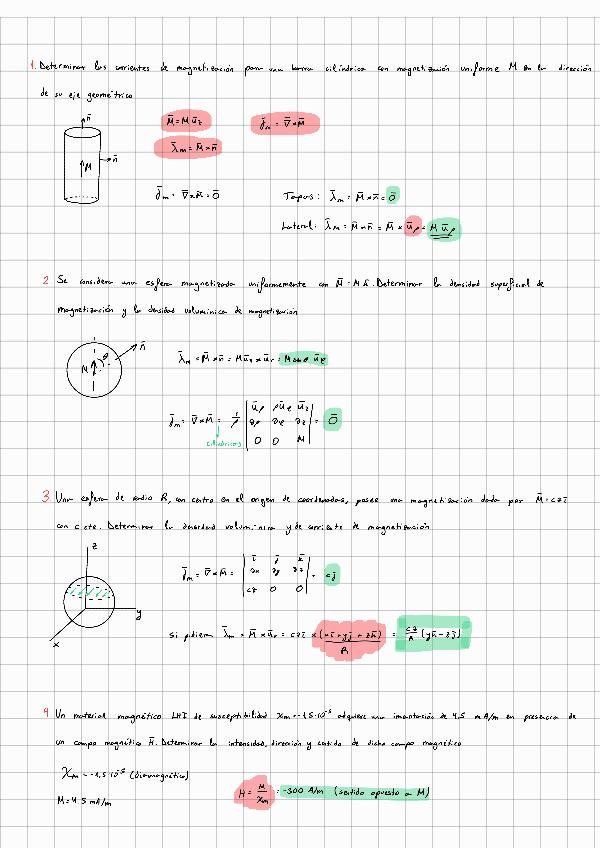 1. Determinar las corrientes de magnetización para una barra cilíndrica con magnetización uniforme M en la dirección
de su eje geométrico
n̄
M̄ = M ū_z
J̄m = ∇̄ × M̄
λ̄m = M̄ × n̄
n̄
M
J̄m = ∇̄ × M̄ = 0̄
Tapas: λ̄m = M̄ × n̄ = 0̄
Lateral: λ̄m = M̄ × n̄ = M̄ × ūρ = M ūφ
2 Se considera una esfera magnetizada uniformemente con M̄ = M k̂. Determinar la densidad superficial de
magnetización y la densidad volumínica de magnetización
n̄
M θ
λ̄m = M̄ × n̄ = M ū_z × ū_r = M sen θ ūφ
J̄m = ∇̄ × M̄ = 1/ρ | ūρ ρūφ ū_z | = 0̄
∂ρ ∂φ ∂z
0 0 M
cilíndricas
3 Una esfera de radio R, con centro en el origen de coordenadas, posee una magnetización dada por M̄ = czī
con c cte. Determinar la densidad volumínica y de corriente de magnetización
z
J̄m = ∇̄ × M̄ = | ī j̄ k̄ | = c j̄
∂x ∂y ∂z
cz 0 0
y
x
si piden λ̄m = M̄ × ū_r = czī × (xī + yj̄ + zk̄)/R = cz/R (yk̄ - zj̄)
4 Un material magnético LHI de susceptibilidad χm = -1,5·10⁻⁵ adquiere una imantación de 4,5 mA/m en presencia de
un campo magnético H̄. Determinar la intensidad, dirección y sentido de dicho campo magnético
χm = -1,5·10⁻⁵ (Diamagnético)
M = 4.5 mA/m
H = M/χm = -300 A/m (sentido opuesto a M)